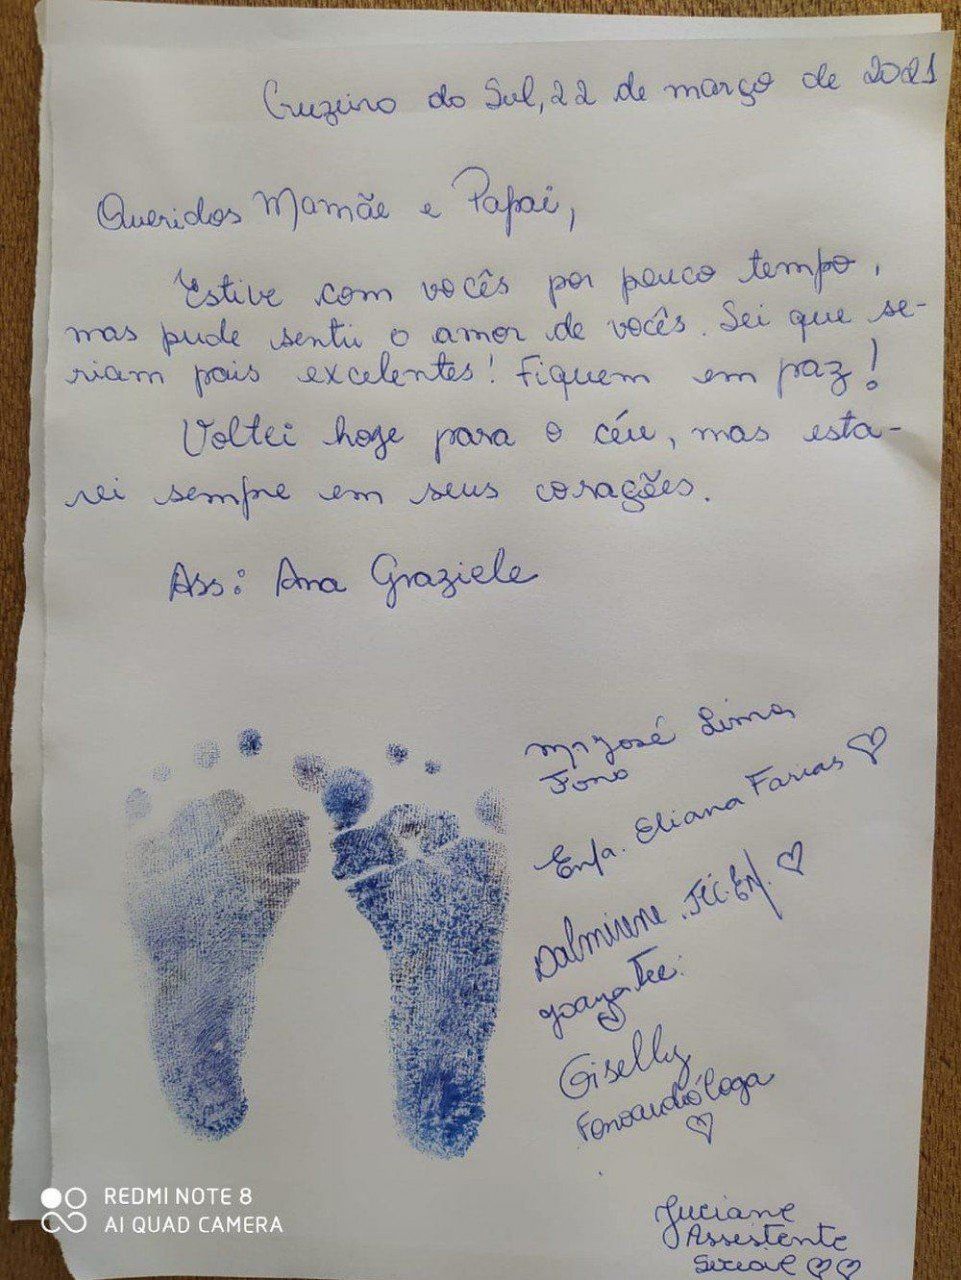 Cruzeiro do Sul, 22 de março de 2021
Queridos Mamãe e Papai,
Estive com vocês por pouco tempo,
mas pude sentir o amor de vocês. Sei que se-
riam pais excelentes! Fiquem em paz!
Voltei hoje para o céu, mas esta-
rei sempre em seus corações.
Ass: Ana Graziele
Mª José Lima
Fono
Enfa. Eliana Farias
Dalmirene
Giselly
Fonoaudióloga
Luciane
Assistente
Social
REDMI NOTE 8
AI QUAD CAMERA